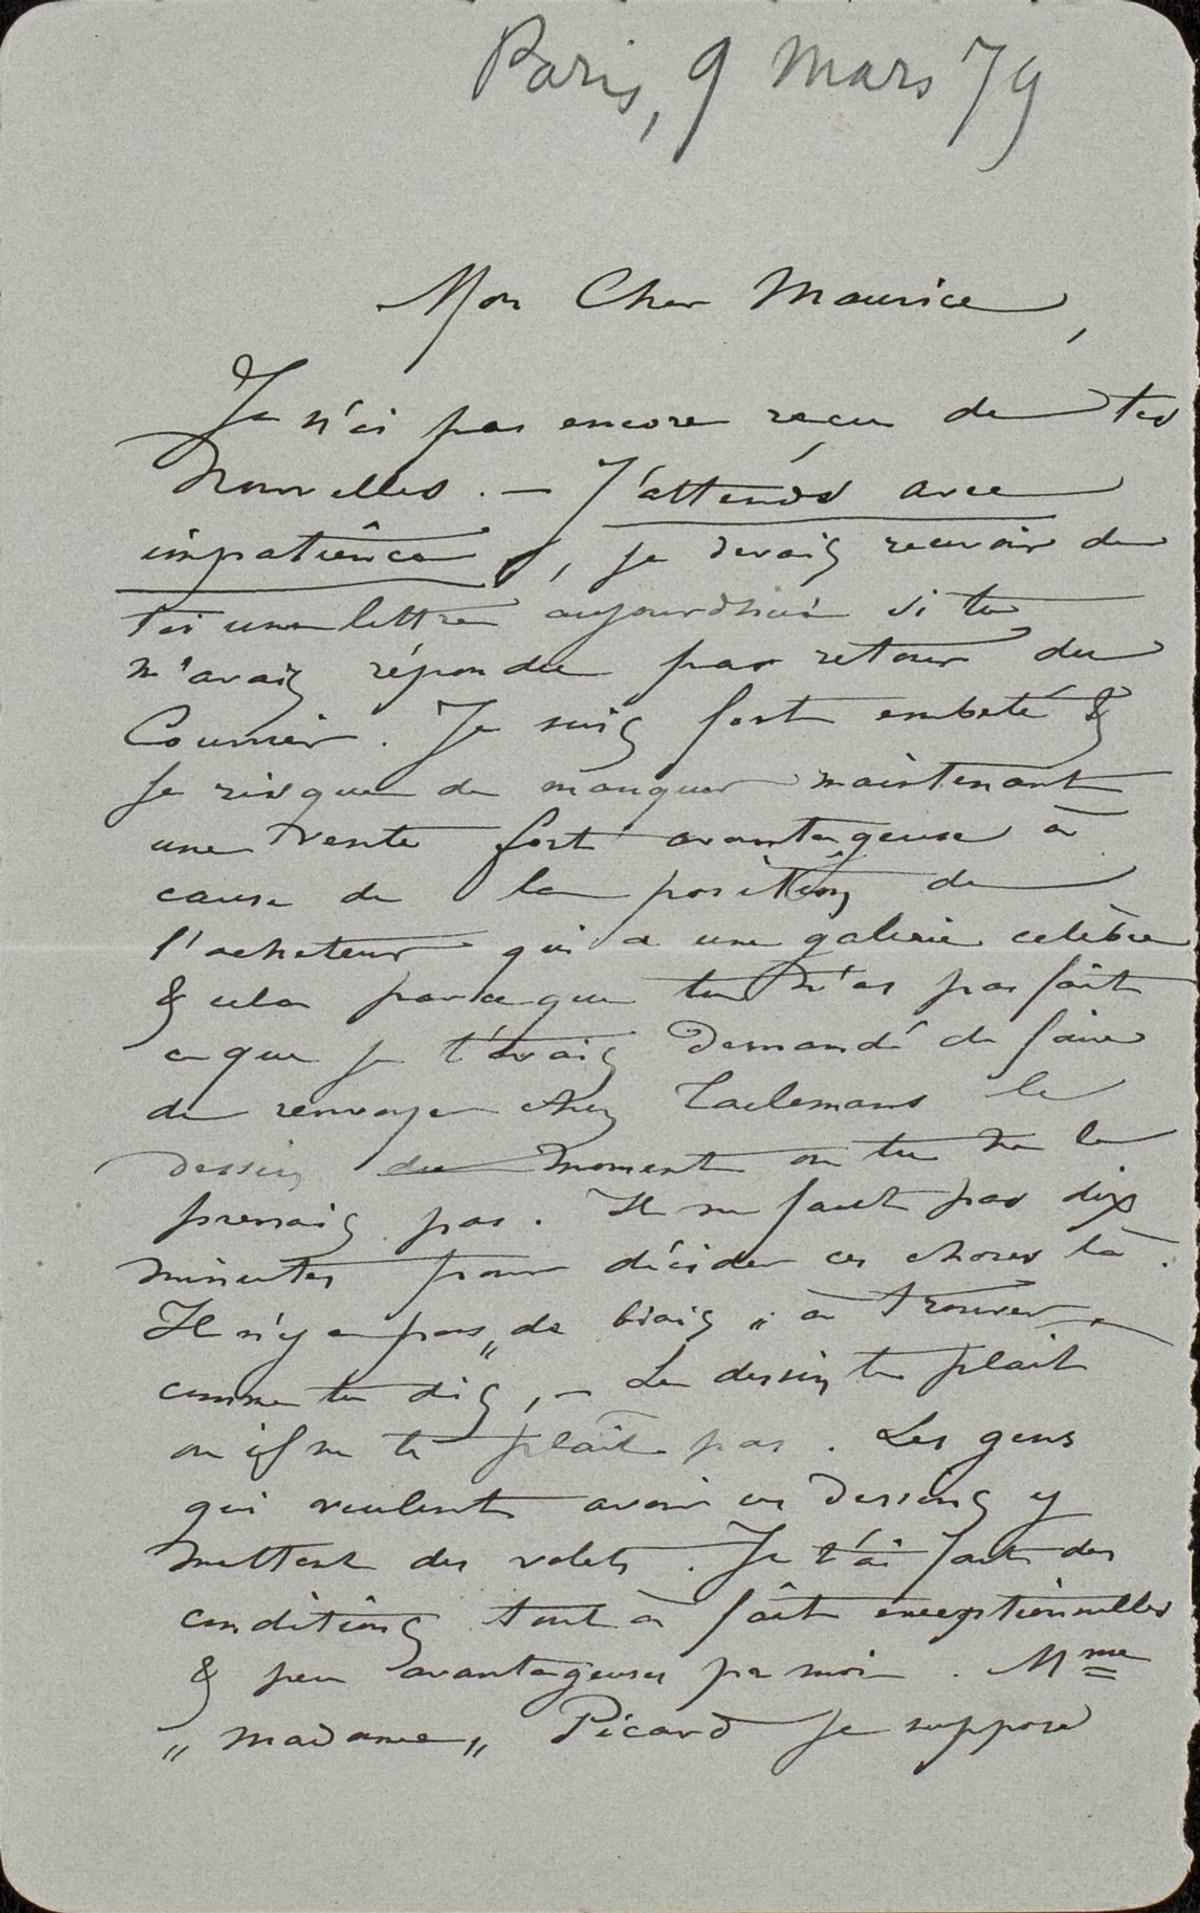 Paris, 9 Mars 79
Mon Cher Maurice,
Je n'ai pas encore reçu de tes
Nouvelles. – J'attends avec
impatience, je devais recevoir de
toi une lettre aujourdhui si tu
m'avais répondu par retour du
Courrier. Je suis fort embeté &
je risque de manquer maintenant
une vente fort avantageuse à
cause de la position de
l'acheteur qui a une galerie celèbre
& cela parceque tu n'as pas fait
ce que je t'avais demandé de faire
de renvoyer chez Taelemans le
dessin du moment ou tu ne le
prenais pas. Il ne faut pas dix
minutes pour décider ces choses là.
Il n'y a pas „de biais„ à trouver,
comme tu dis, – Le dessin te plait
ou il ne te plait pas. Les gens
qui veulent avoir ces dessins y
mettent des volets. Je t'ai fait des
conditions tout à fait exceptionnelles
& peu avantageuses pr moi. Mme
„madame„ Picard je suppose